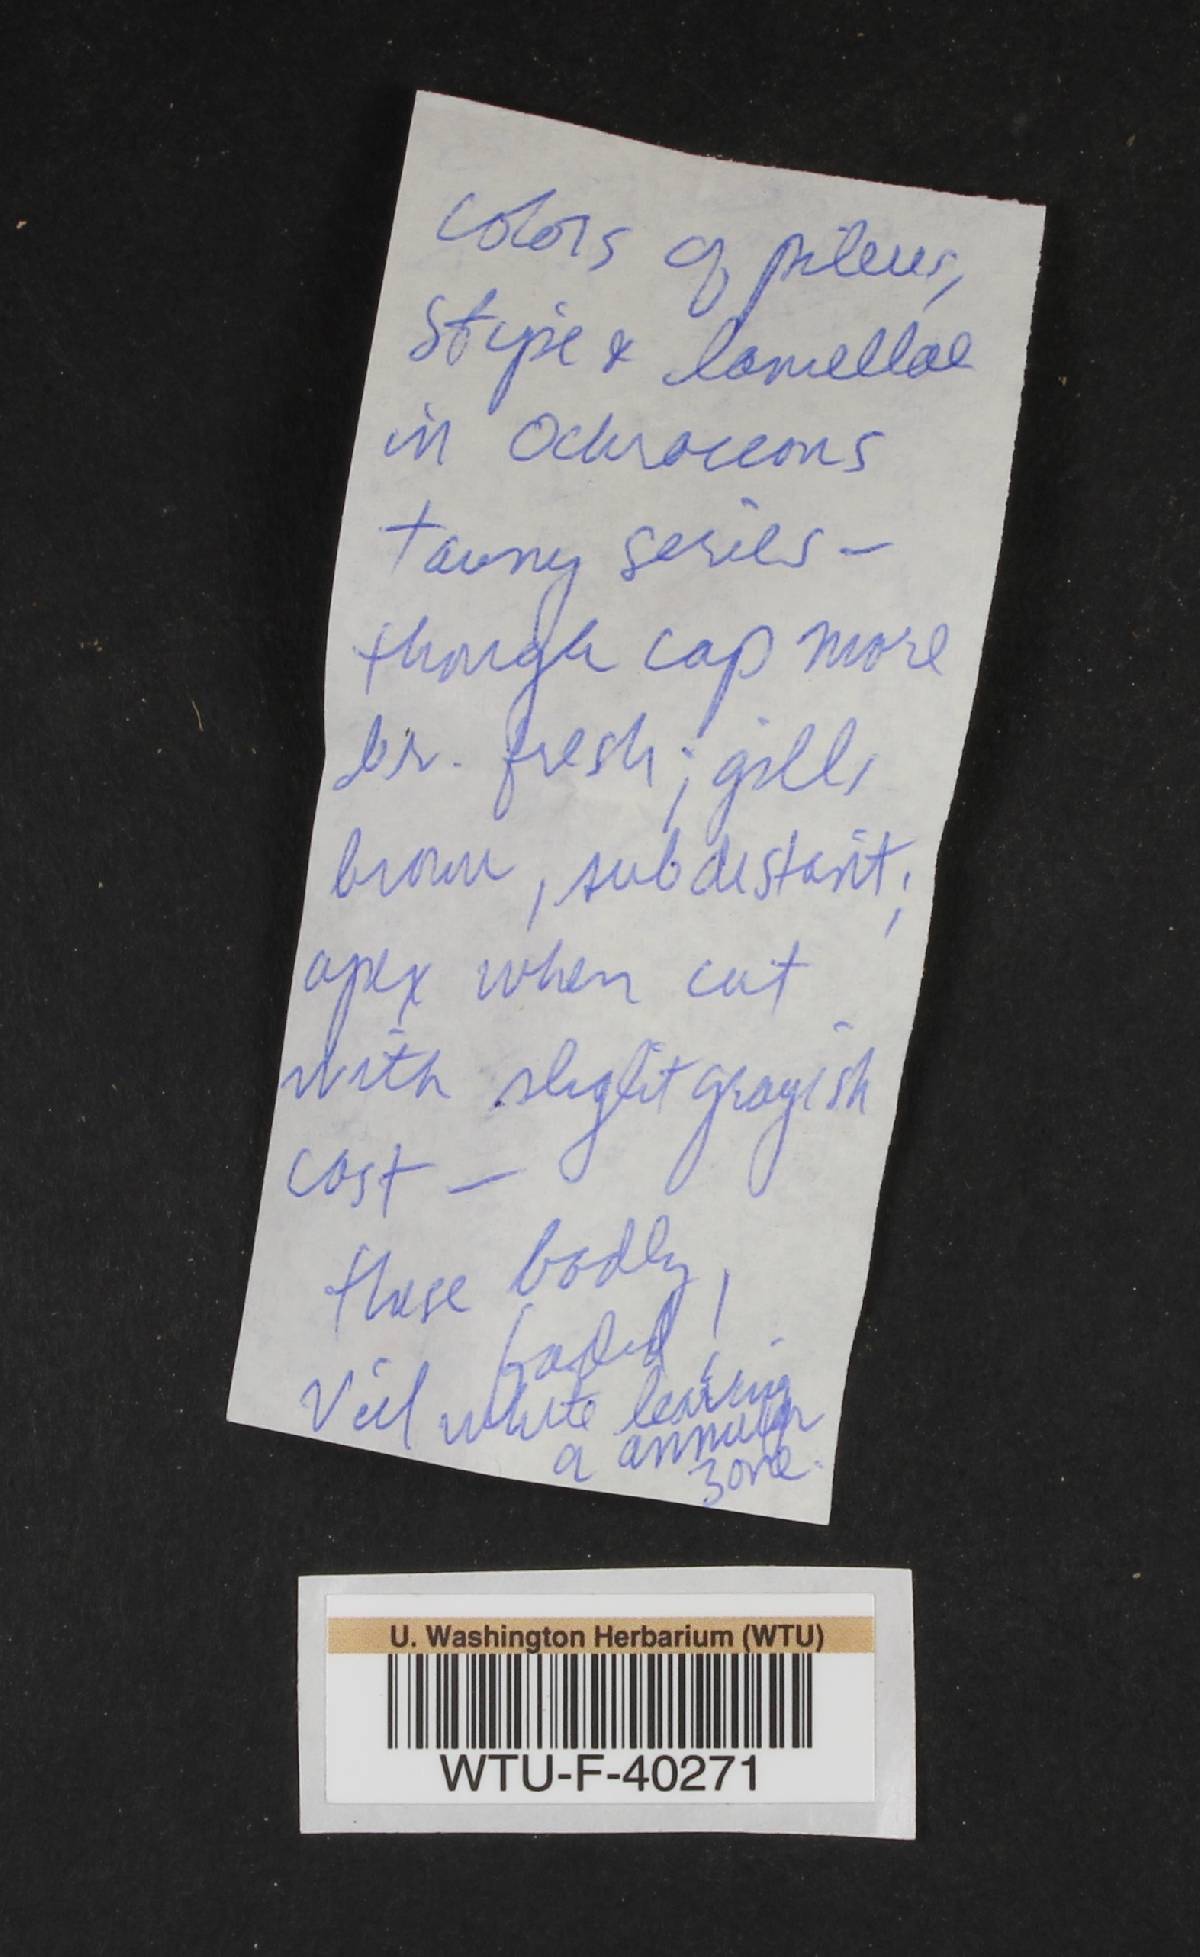 colors of pileus,
stipe & lamellae
in ochraceous
tawny series —
though cap more
br. fresh; gills
brown, subdistant;
apex when cut
with slight grayish
cast —
these badly
faded!
Veil white leaving
a annular
zone.
U. Washington Herbarium (WTU)
WTU-F-40271